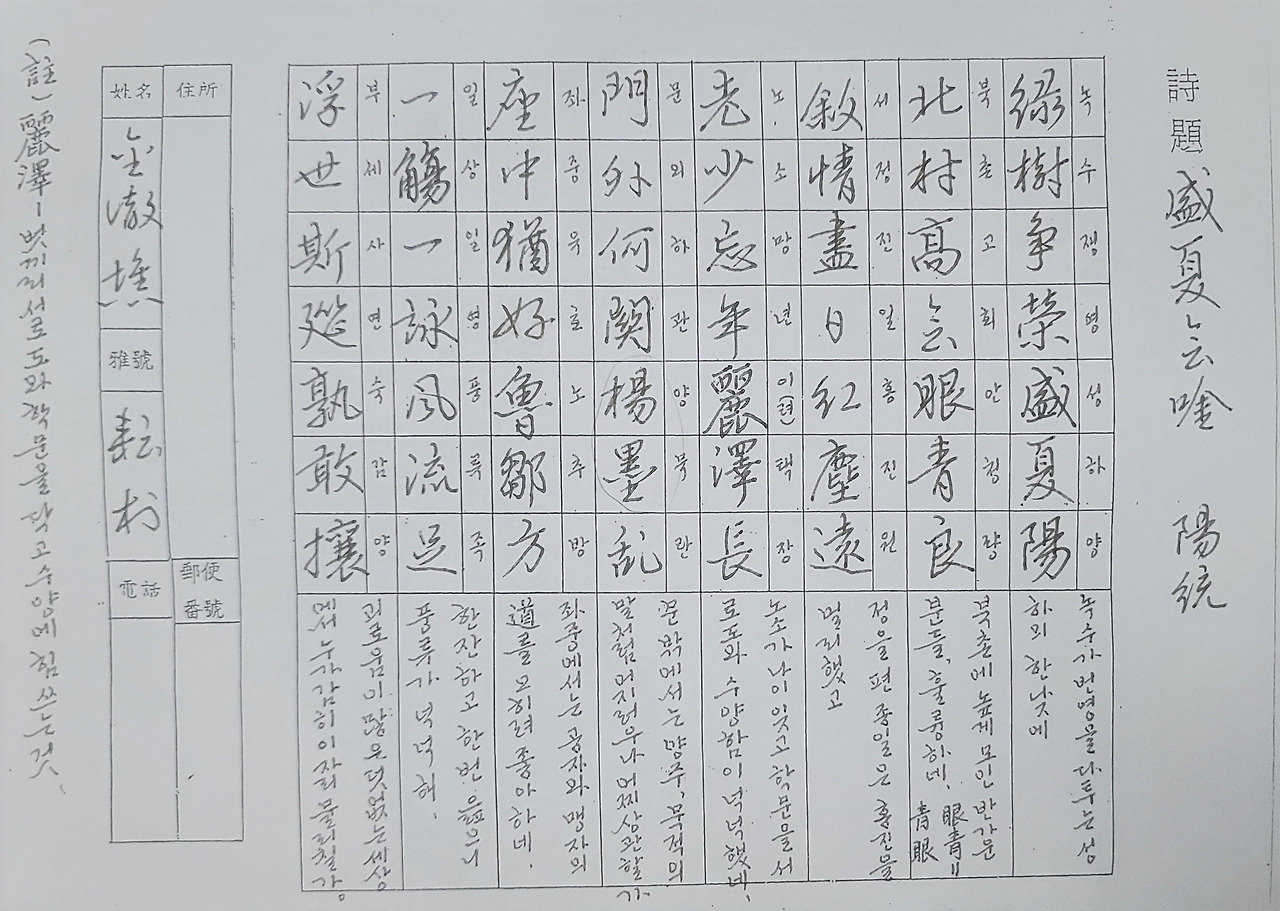 詩題 盛夏会吟 陽統
綠樹爭榮盛夏陽
녹수쟁영성하양
녹수가 번영을 다투는 성
하의 한낮에
北村高会眼青良
북촌고회안청량
북촌에 높게 모인 반가운
분들, 훌륭하네. 眼青=青眼
敘情盡日紅塵遠
서정진일홍진원
정을 편 종일은 홍진을
멀리했고
老少忘年麗澤長
노소망년이(려)택장
노소가 나이 잊고 학문을 서
로 도와 수양함이 넉넉했네.
門外何関楊墨乱
문외하관양묵란
문 밖에서는 양주, 묵적의
말처럼 어지러우나 어찌 상관할가
座中猶好魯鄒方
좌중유호노추방
좌중에서는 공자와 맹자의
道를 오히려 좋아하네.
一觴一詠風流足
일상일영풍류족
한잔하고 한번 읊으니
풍류가 넉넉해.
浮世斯筵孰敢攘
부세사연숙감양
괴로움이 많은 덧없는 세상
에서 누가 감히 이 자리 물리칠가.
住所
郵便番號
姓名 金澈
雅號 耘村
電話
(註) 麗澤-벗끼리 서로 도와 학문을 닦고 수양에 힘쓰는 것.